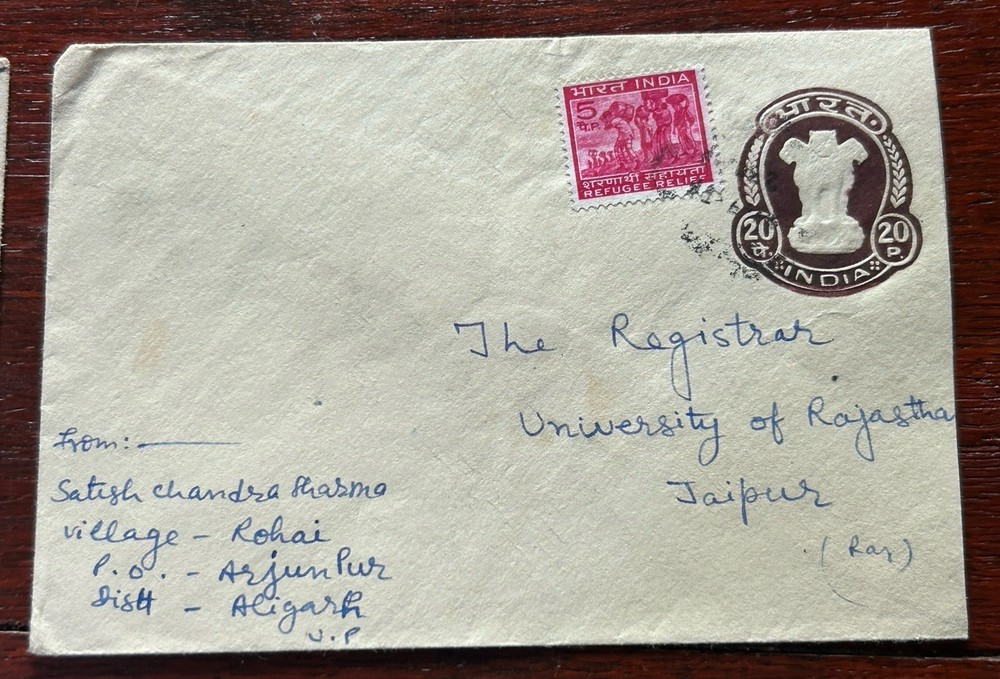 भारत INDIA
5
पै.P.
शरणार्थी सहायता
REFUGEE RELIEF
भारत
20
पै.
20
P.
INDIA
The Registrar
University of Rajastha
Jaipur
(Raj)
From:-
Satish Chandra Sharma
Village - Rohai
P.O. - Arjunpur
Distt - Aligarh
U.P